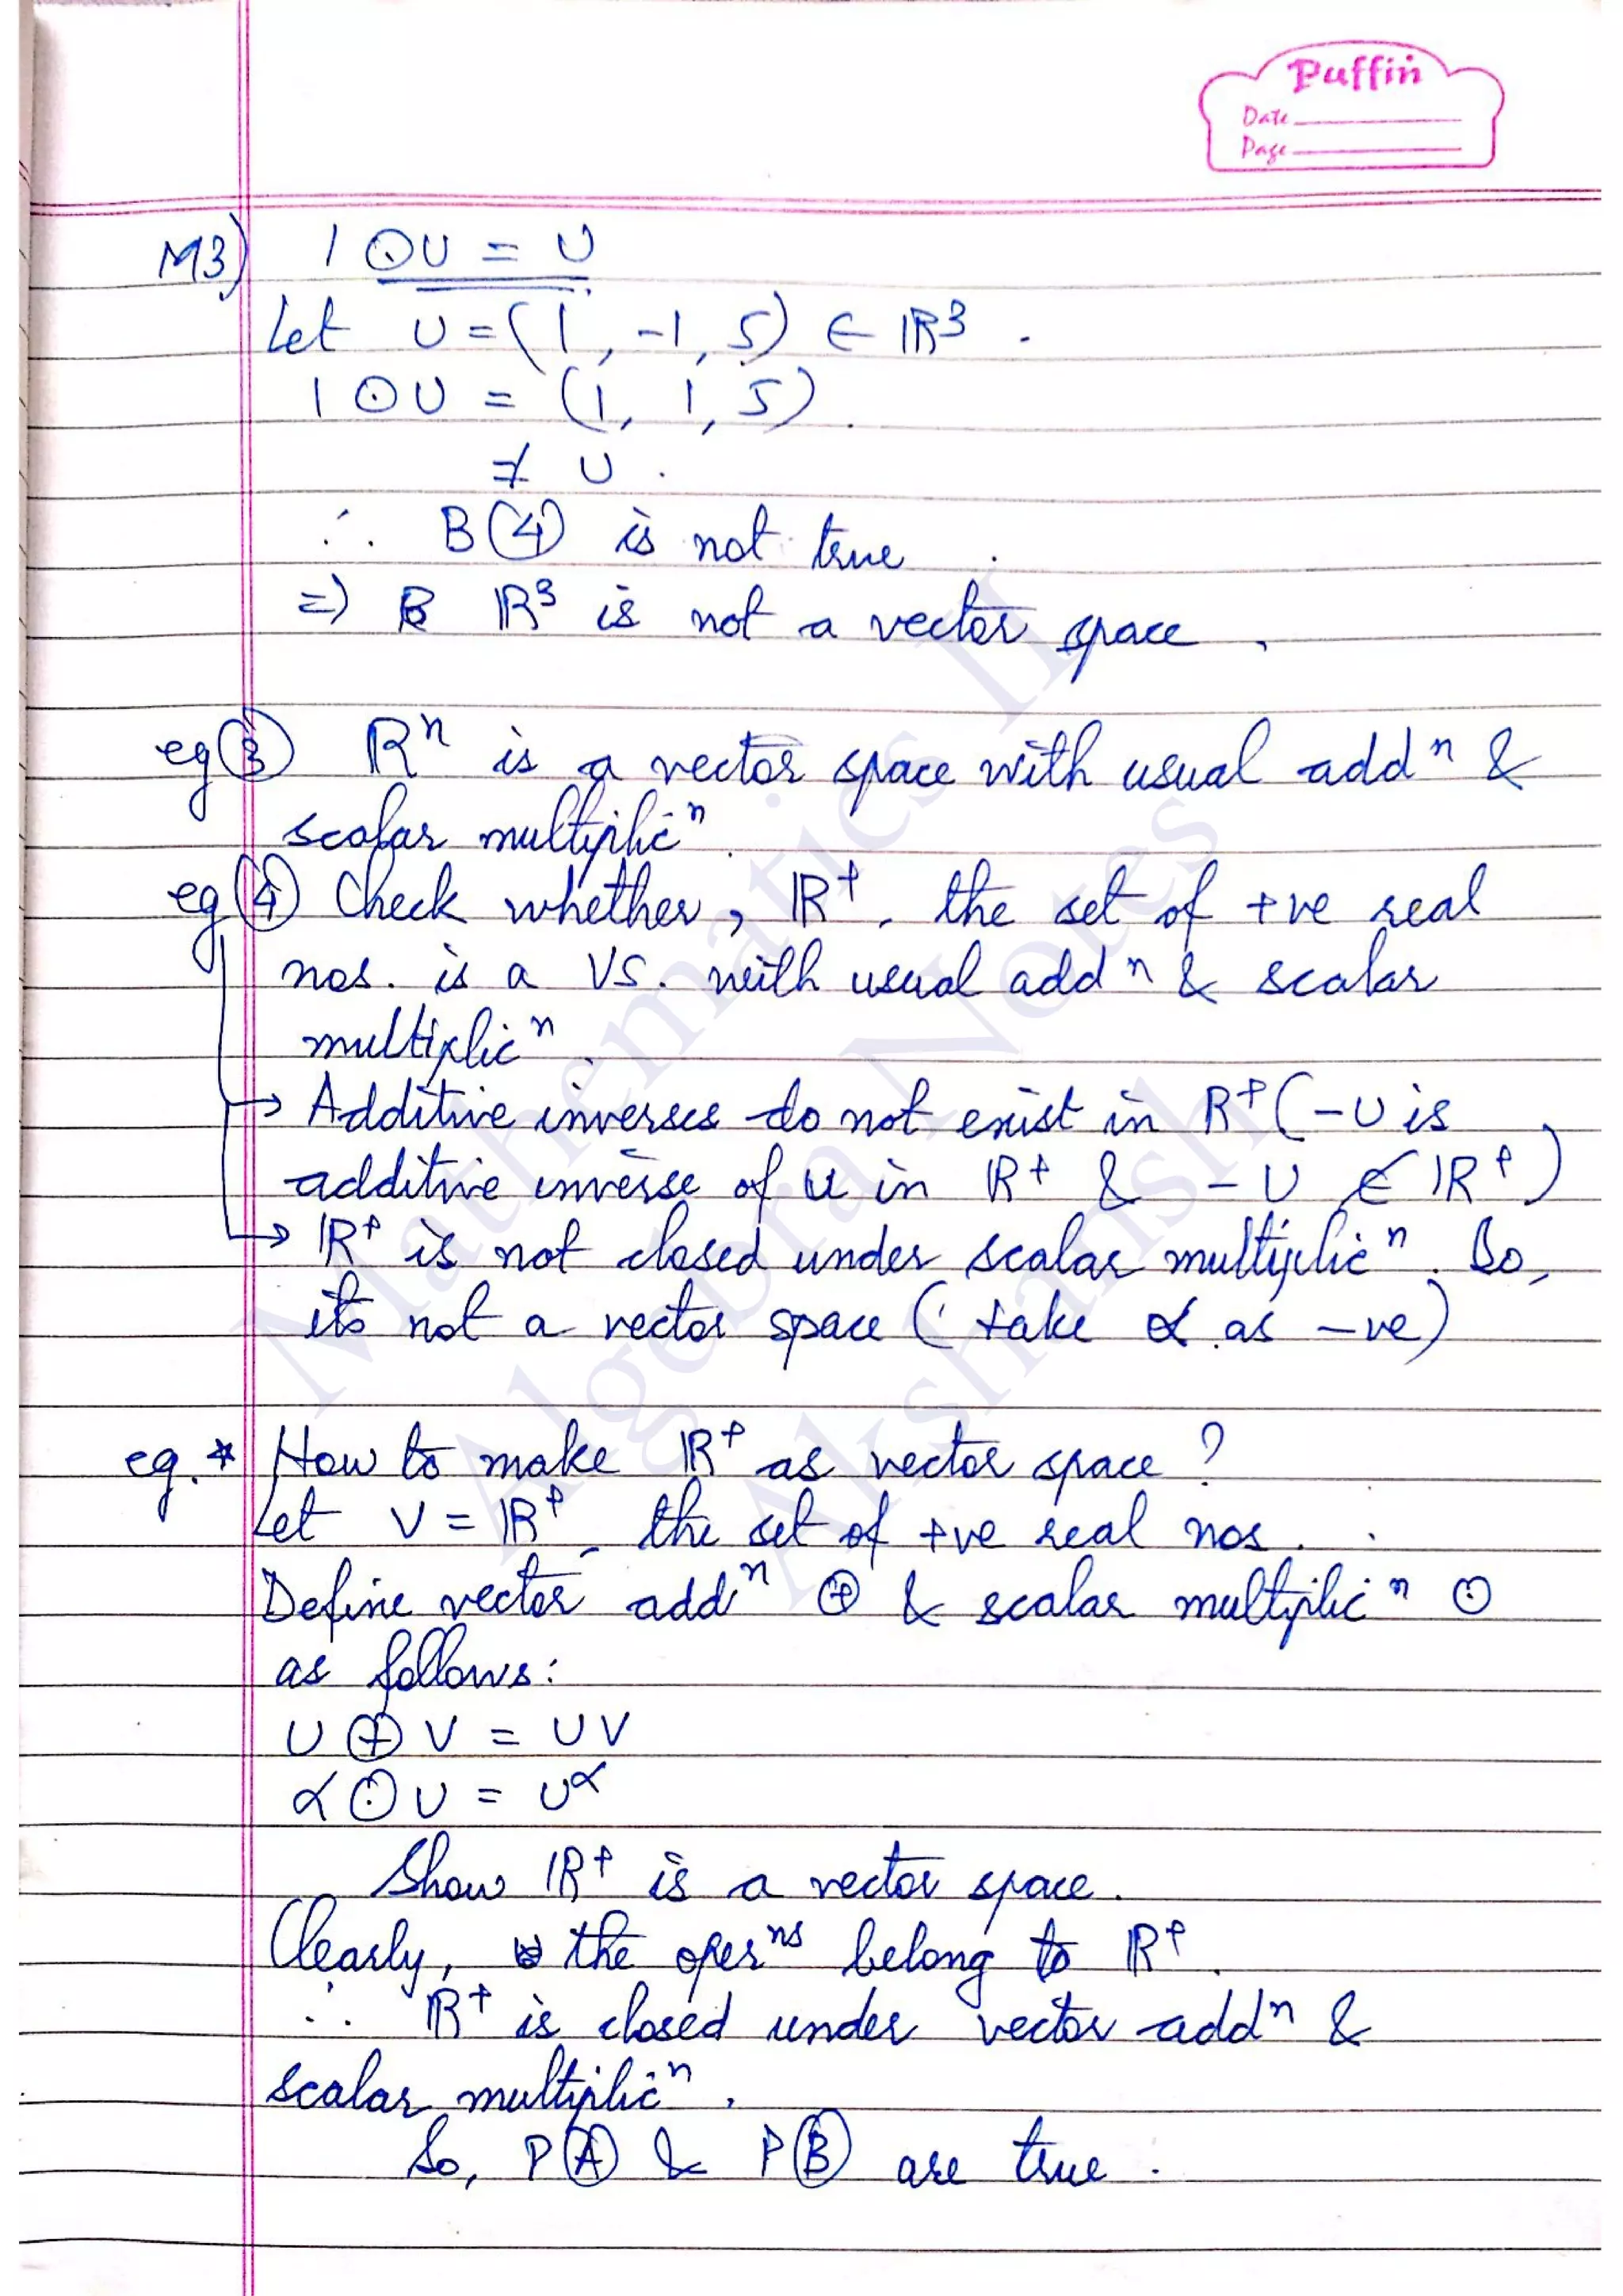 Puffin
Date
Page
M3) 1 ⊙ U = U
Let U = (1, -1, 5) ∈ ℝ³.
1 ⊙ U = (1, 1, 5).
≠ U.
∴ B④ is not true.
⇒ ℝ³ is not a vector space.
eg③ ℝⁿ is a vector space with usual addⁿ &
scalar multiplicⁿ.
eg④ Check whether, ℝ⁺, the set of +ve real
nos. is a VS. with usual addⁿ & scalar
multiplicⁿ.
→ Additive inverses do not exist in ℝ⁺ (-U is
additive inverse of u in ℝ⁺ & -U ∉ ℝ⁺)
→ ℝ⁺ is not closed under scalar multiplicⁿ. So,
its not a vector space (: take α as -ve)
eg.* How to make ℝ⁺ as vector space?
Let V = ℝ⁺, the set of +ve real nos.
Define vector addⁿ ⊕ & scalar multiplicⁿ ⊙
as follows:
U ⊕ V = UV
α ⊙ U = U^α
Show ℝ⁺ is a vector space.
Clearly, the operⁿˢ belong to ℝ⁺.
∴ ℝ⁺ is closed under vector addⁿ &
scalar multiplicⁿ.
So, PⒶ & PⒷ are true.
Mathematics II
Algebra Notes
Akshansh